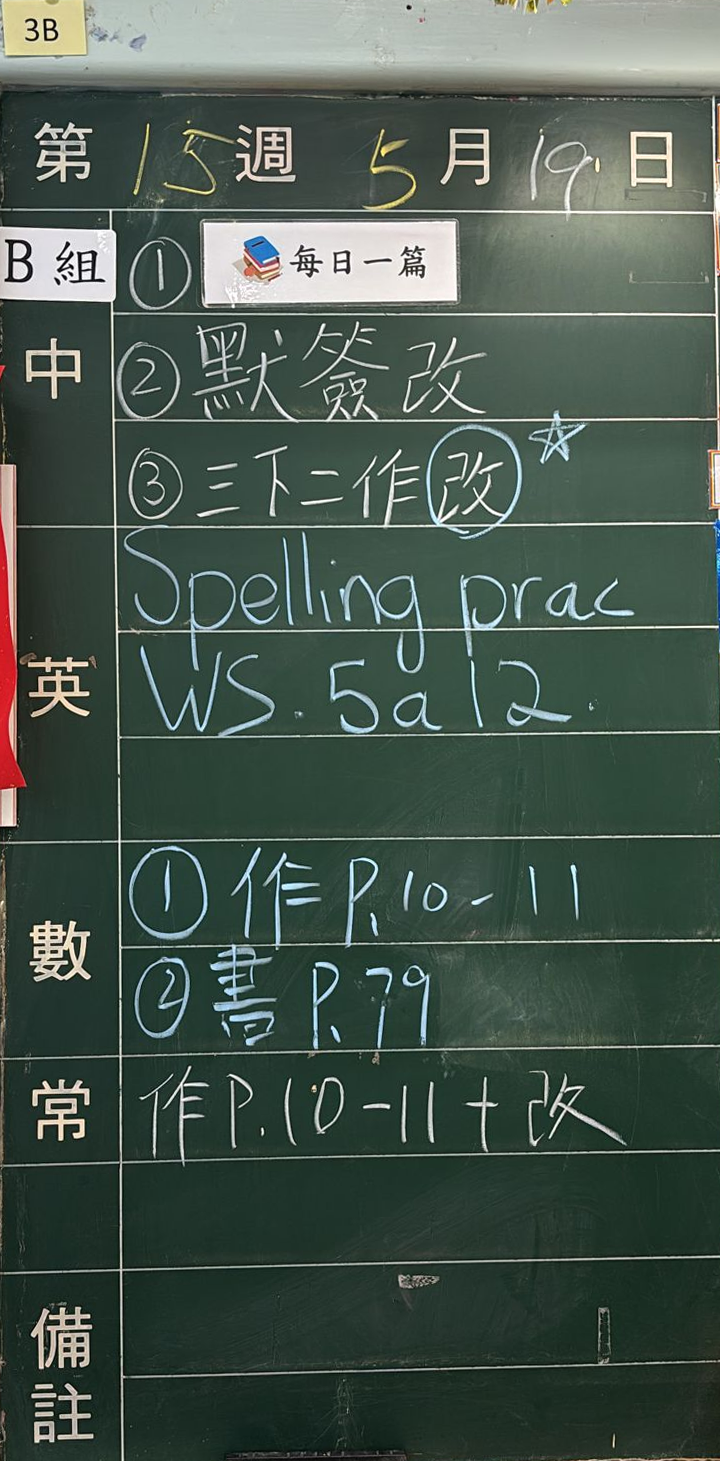 3B
第 15 週 5 月 19 日
B 組 ① 每日一篇
中 ② 默簽改
③ 三下二作改
Spelling prac
英 WS. 5a 12.
① 作 P.10-11
數
② 書 P.79
常 作 P.10-11+改
備
註